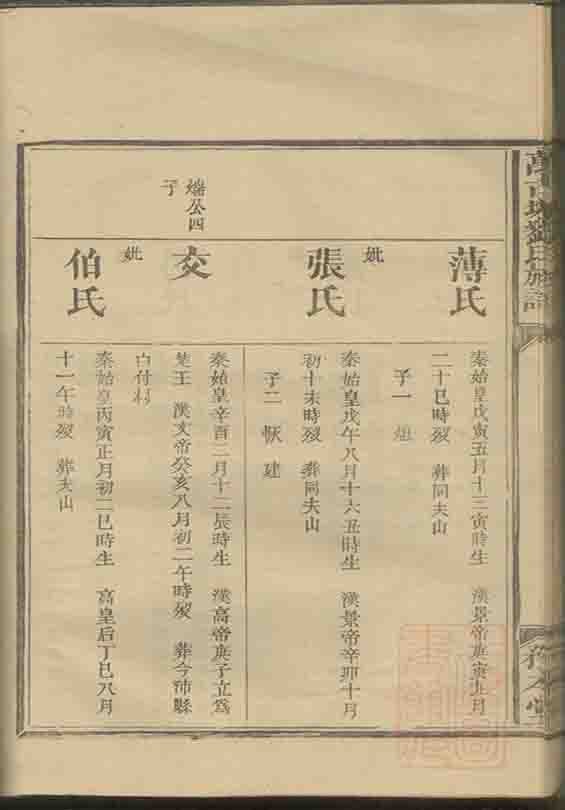 劉氏族譜
薄氏
秦始皇戊寅五月十三寅時生 漢景帝庚寅九月
二十巳時歿 葬同夫山
子一 恒
妣
張氏
秦始皇戊午八月十六丑時生 漢景帝辛卯十月
初十未時歿 葬同夫山
子二 恢 建
煓公四
子
交
秦始皇辛酉二月十二辰時生 漢高帝庚子立為
楚王 漢文帝癸亥八月初二午時歿 葬今沛縣
白付村
妣
伯氏
秦始皇丙寅正月初二巳時生 高皇后丁巳八月
十一午時歿 葬夫山